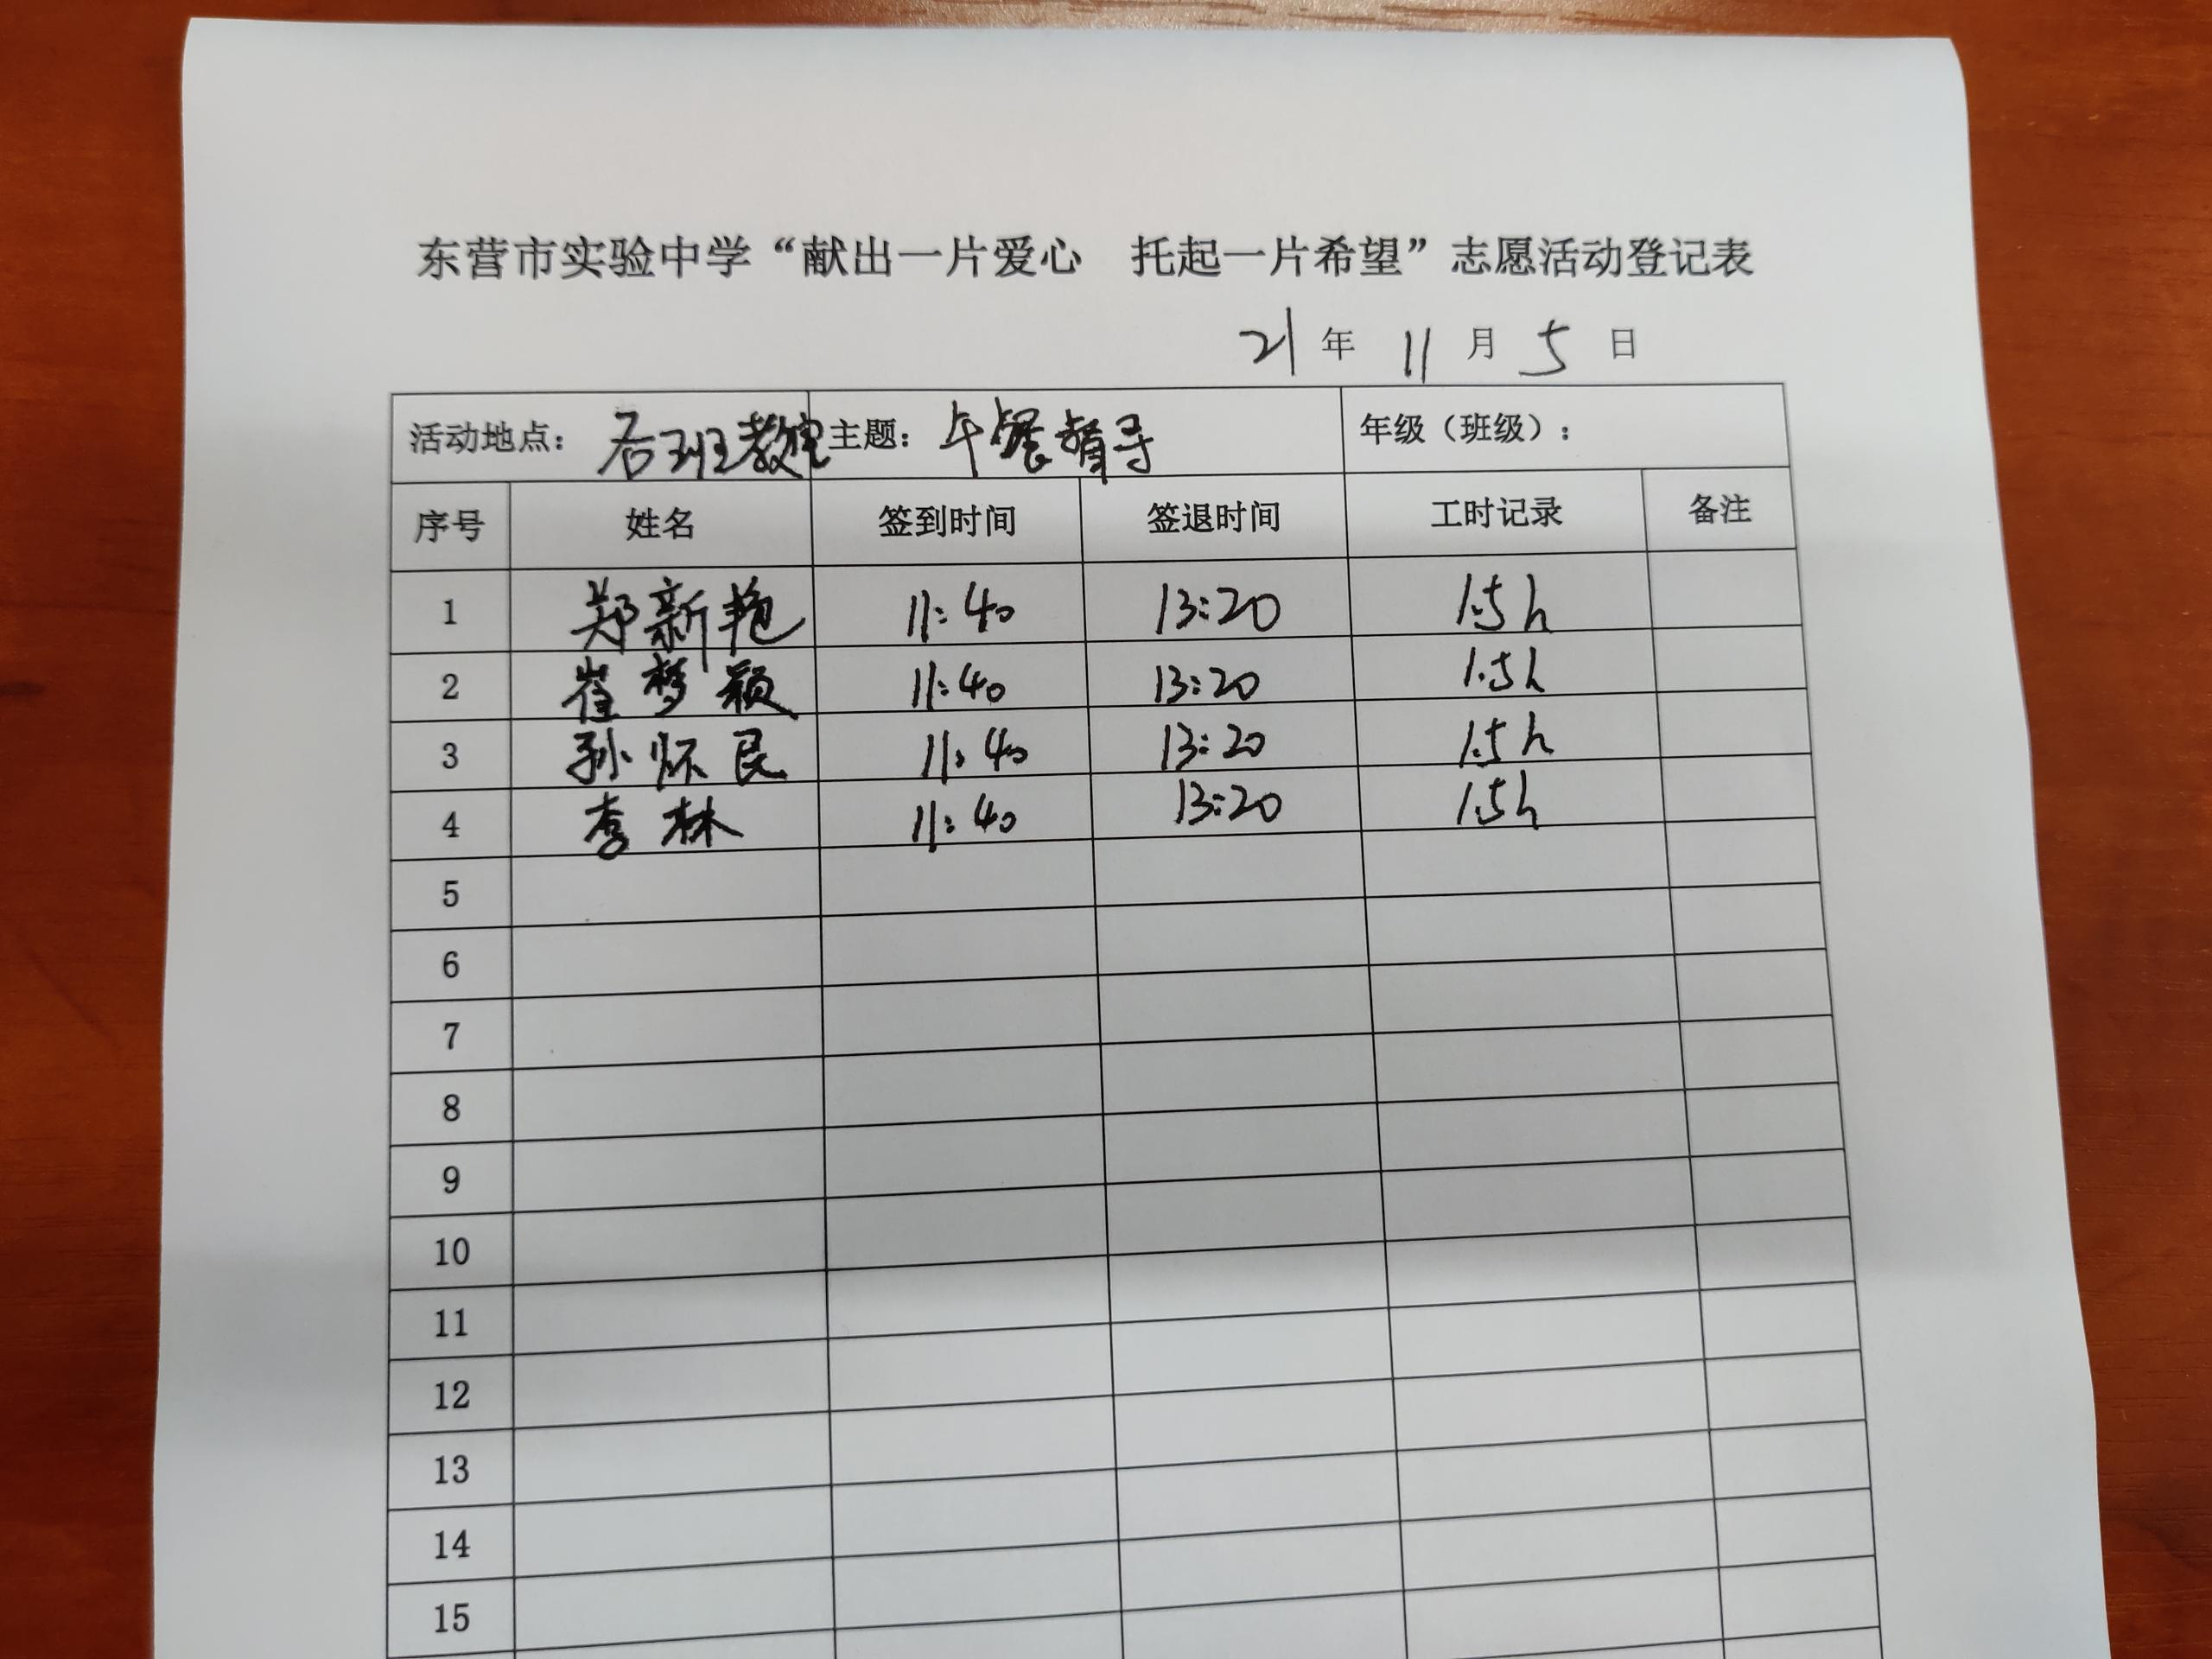 东营市实验中学“献出一片爱心 托起一片希望”志愿活动登记表
21 年 11 月 5 日
活动地点： 各班教室 主题： 午餐督导 年级（班级）：
序号 姓名 签到时间 签退时间 工时记录 备注
1 郑新艳 11:40 13:20 1.5h
2 崔梦颖 11:40 13:20 1.5h
3 孙怀民 11:40 13:20 1.5h
4 李林 11:40 13:20 1.5h
5
6
7
8
9
10
11
12
13
14
15